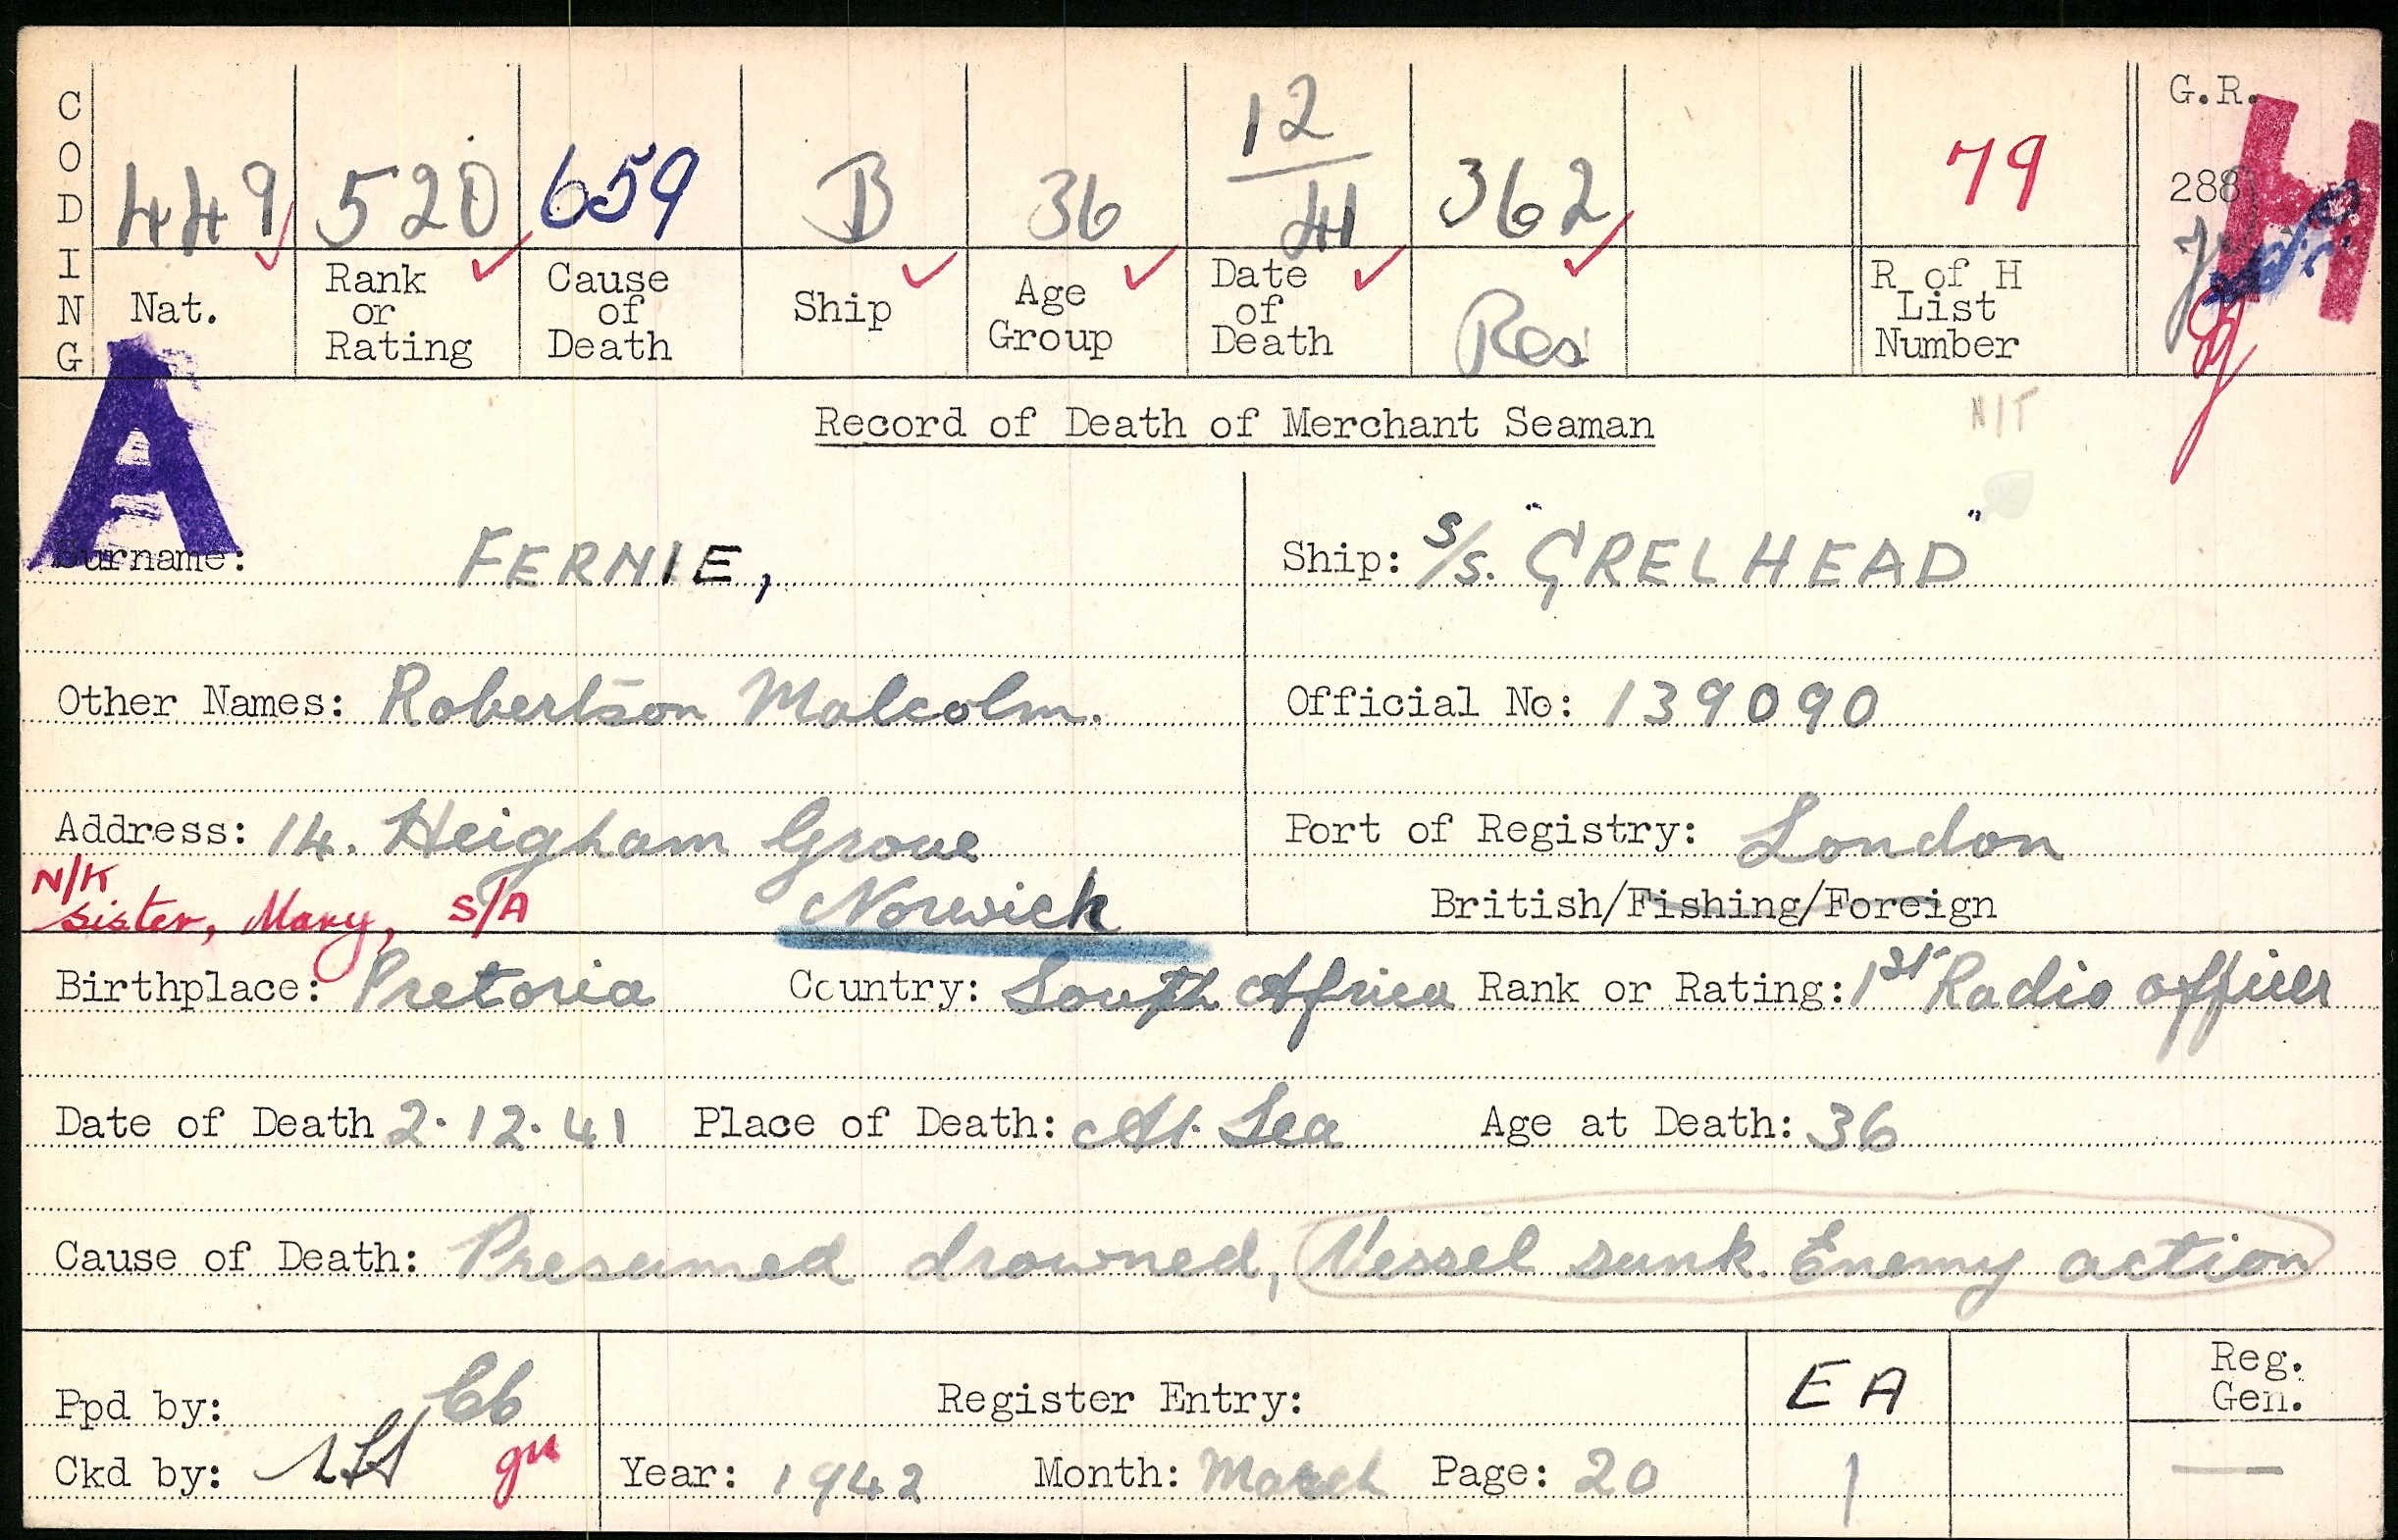 CODING
449 520 659 B 36 12/41 362 79 G.R. 288
Nat. Rank or Rating Cause of Death Ship Age Group Date of Death Res R of H List Number
H
A
Record of Death of Merchant Seaman N/T
Surname: FERNIE, Ship: s/s. "GRELHEAD"
Other Names: Robertson Malcolm. Official No: 139090
Address: 14. Heigham Grove Port of Registry: London
N/K sister, Mary, S/A Norwich British/Fishing/Foreign
Birthplace: Pretoria Country: South Africa Rank or Rating: 1st Radio officer
Date of Death 2.12.41 Place of Death: At. Sea Age at Death: 36
Cause of Death: Presumed drowned, Vessel sunk. Enemy action
Ppd by: Register Entry: EA Reg. Gen.
Ckd by: Year: 1942 Month: March Page: 20 1 —